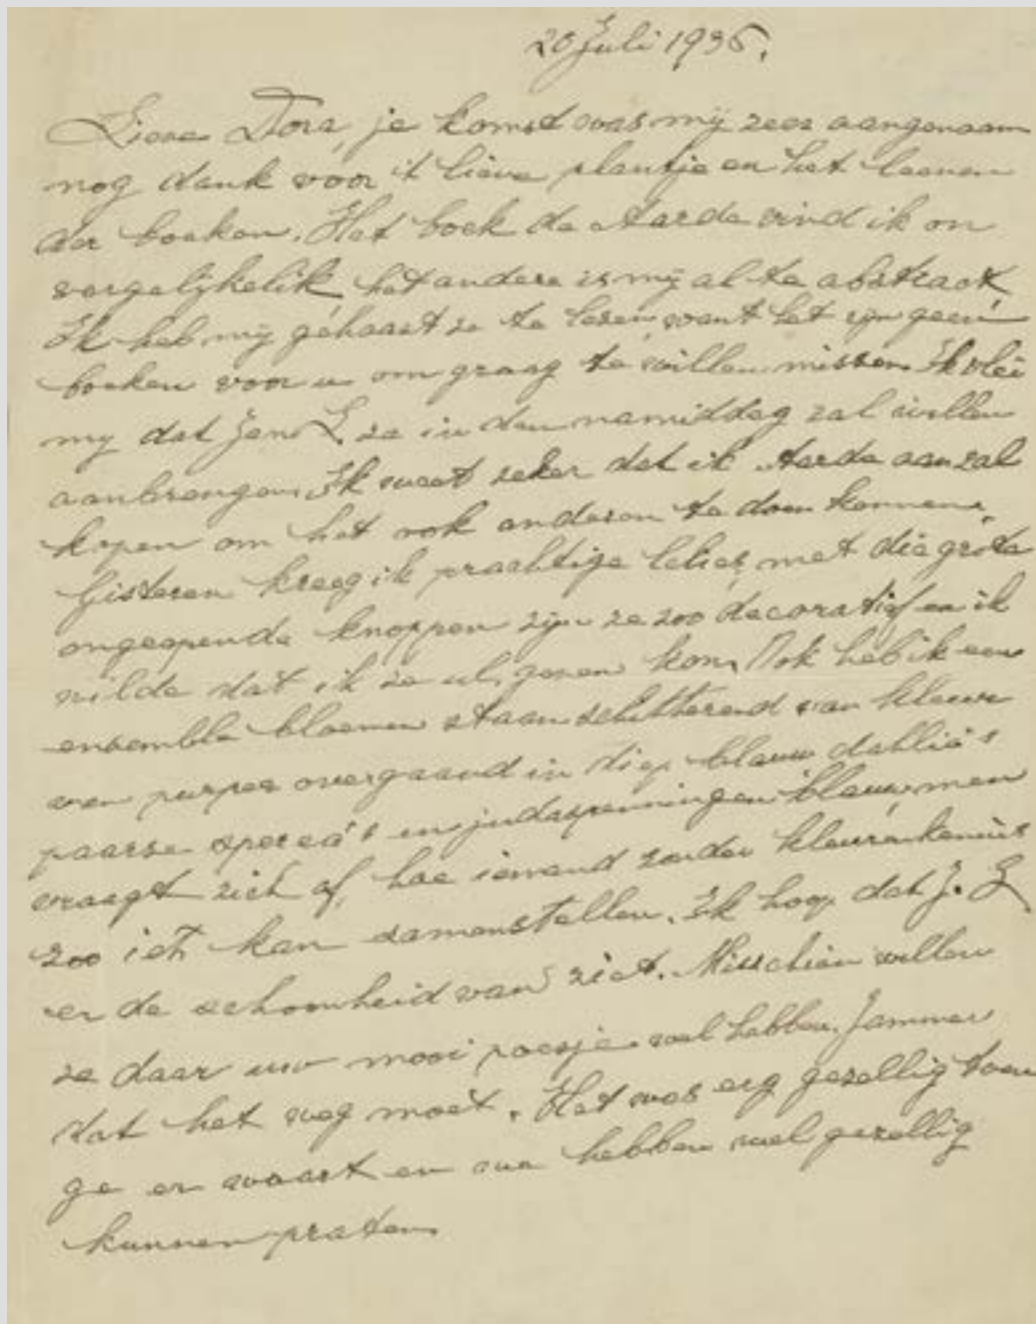 20 Juli 1936.
Lieve Dora, je komst was mij zeer aangenaam
nog dank voor 't lieve plantje en het leenen
der boeken. Het boek de Aarde vind ik on
vergelijkelik het andere is mij al te abstract
Ik heb mij gehaast ze te lezen want het zijn geen
boeken voor u om graag te willen missen. Ik vlei
my dat Jan L ze in den namiddag zal willen
aanbrengen. Ik weet zeker dat ik Aarde aan zal
kopen om het ook anderen te doen kennen.
Gisteren kreeg ik prachtige lelies, met die grote
ongeopende knoppen zijn ze zoo decoratief en ik
wilde dat ik ze u geven kon. Ook heb ik een
ensemble bloemen staan schitterend van kleur
van purper overgaand in diep blauw dahlia's
paarse sperea's en judaspenningen blauw, men
vraagt zich af, hoe iemand zonder kleurenkennis
zoo iets kan samenstellen. Ik hoop dat J. L
er de schoonheid van ziet. Misschien willen
ze daar uw mooi poesje wel hebben. Jammer
dat het weg moet. Het was erg gezellig toen
ge er waart en we hebben wel gezellig
kunnen praten